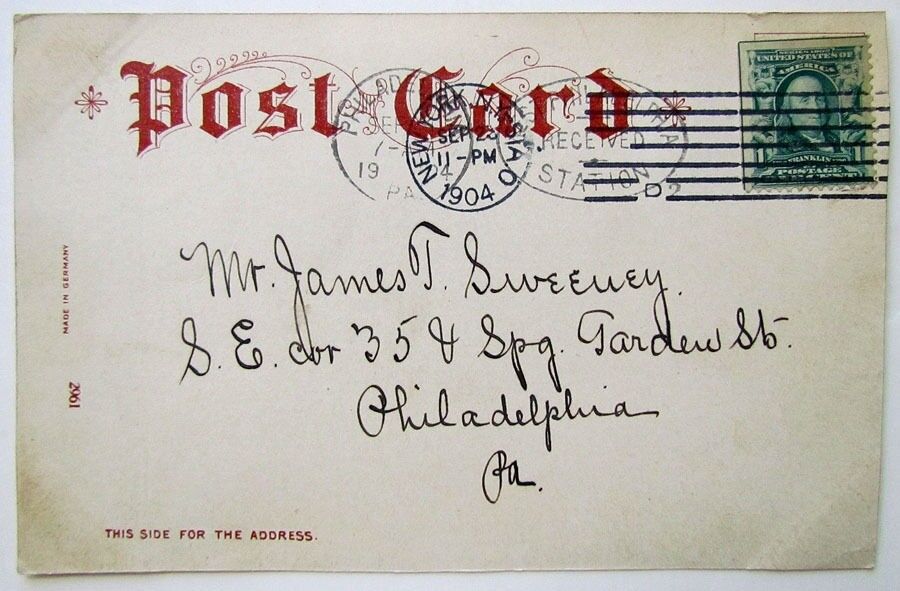 Post Card
PHILADEL
SEP
7-
19 4
PA.
NEW YORK, N.Y. STA. O
SEP 28
11-PM
1904
RECEIVED
STATION
D
SERIES 1902
UNITED STATES OF
AMERICA
FRANKLIN
POSTAGE
Mr. James T. Sweeney.
S. E. cor 35 & Spg. Garden Sts.
Philadelphia
Pa.
MADE IN GERMANY
2961
THIS SIDE FOR THE ADDRESS.